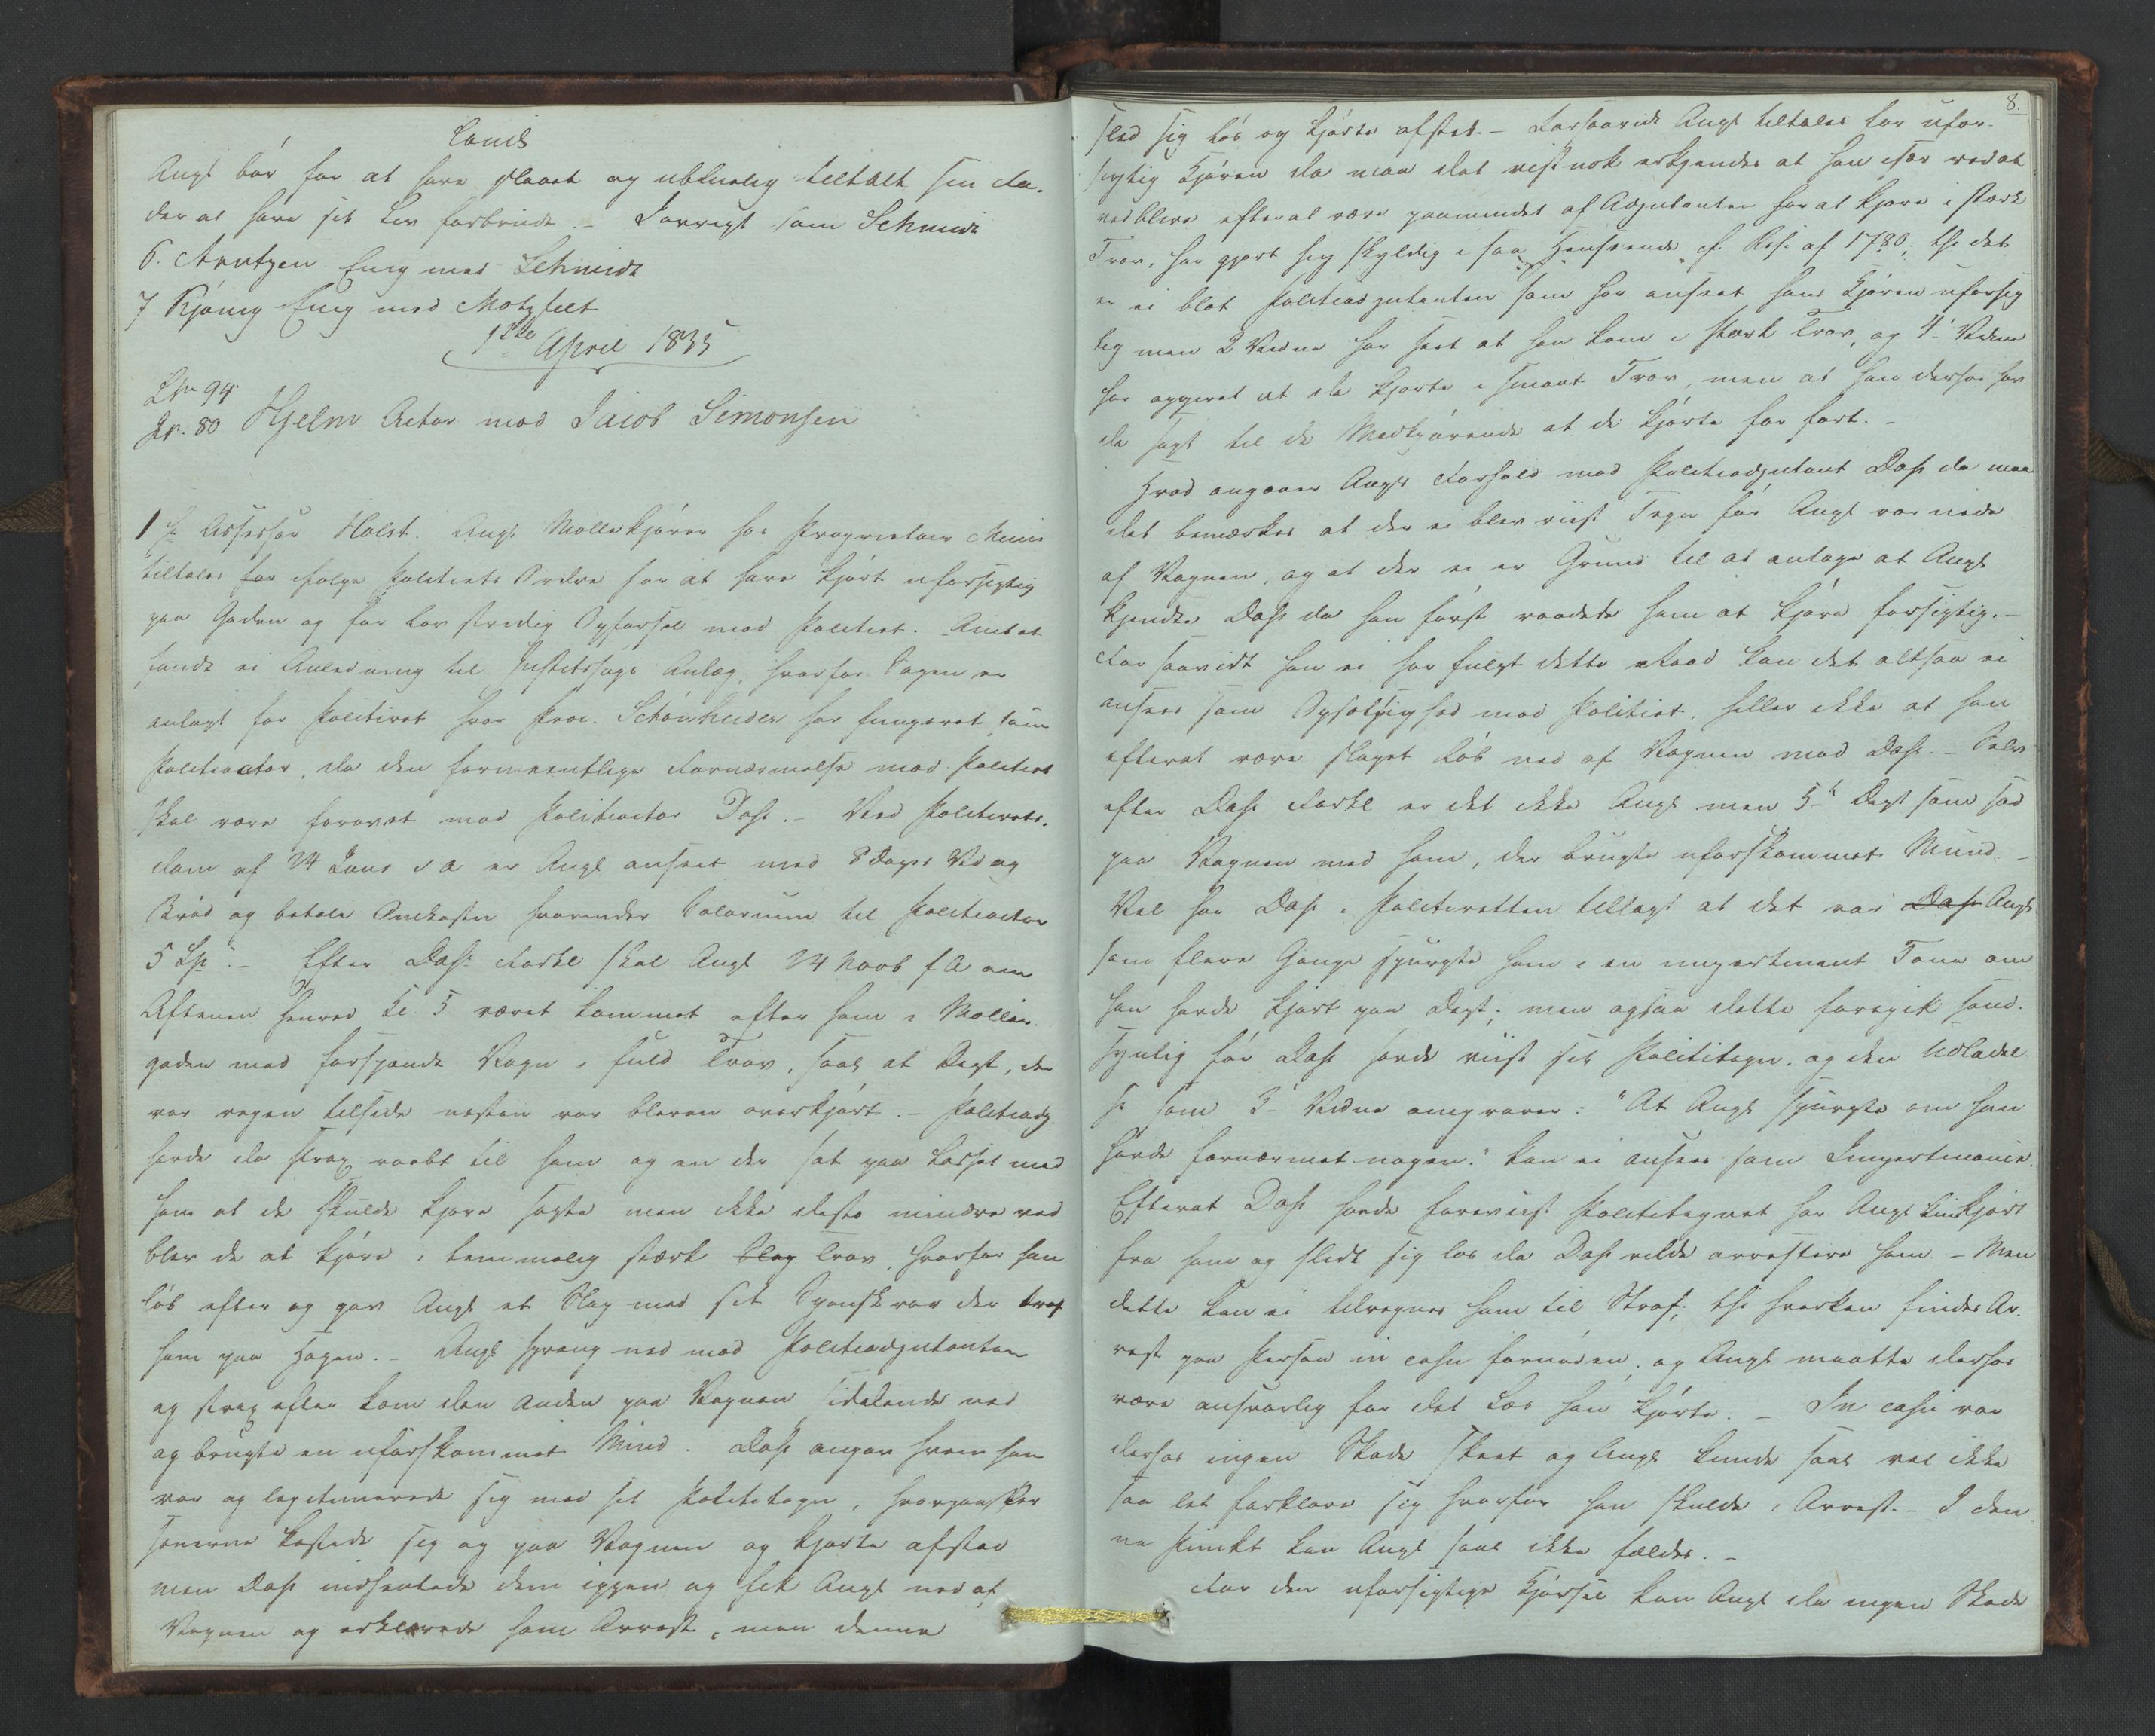 Lands
Angl bør for at have slaaet og utilbørlig tiltalt sin Fa-
der at have sit Liv forbrudt. – Forrigt som Schmidt
6. Arntzen Enig med Schmidt
7 Kjønig Enig med Motzfelt
1ste April 1835
LNr 94
Jr. 80 Hjelm Actor mod Jacob Simonsen
1 Hr Assessor Holst. Angl Møllekjører hos Proprietair
tiltales for ifølge Politiets Ordre for at have kjørt uforsigtig
paa Gaden og for lovstridig Opførsel mod Politiet. Amtet
fandt ei Anledning til Justitssags Anlæg, hvorfor Sagen er
anlagt for Politiret hvor Proc. Schönheider har fungeret som
Politiactor, da den formeentlige Fornærmelse mod Politiet
skal være forøvet mod Politiactor Dass. – Ved Politirets-
dom af 24 Janr d a er Angl anseet med 8 Dages Vand og
Brød og betale Omkostn. herunder Salarium til Politiactor
5 Sp. – Efter Dass Forkl skal Angl 24 Novb f A om
Aftenen henved Kl 5 været kommet efter ham i Møller-
gaden med forspændt Vogn i fuld Trav, saa at Dept, der
var vegen tilside næsten var bleven overkjørt. – Politiadj
havde da strax raabt til ham og en der sat paa Lasset med
ham at de skulde kjøre sagte men ikke desto mindre ved
blev de at kjøre i temmelig stærk Trav, hvorfor han
løb efter og gav Angl et Slag med sit Spanskrør der traf
ham paa Hagen. – Angl sprang ned mod Politiadjutanten
og strax efter kom den anden paa Vognen ned
og brugte en uforskammet Mund. Dass angav hvem han
var og legitimerede sig med sit Politiitegn, hvorpaa Per
sonerne kastede sig op paa Vognen og kjørte afsted
men Dass indhentede dem igjen og fik Angl ned af
Vognen og erklærede ham Arrest, men denne
8.
sled sig løs og kjørte afsted. – Forsaavidt Angl tiltales for ufor-
sigtig Kjøren da maa det vistnok erkjendes at han især ved at
vedblive efterat være paamindet af Adjutanten for at kjøre i stærk
Trav, har gjort sig skyldig i saa Henseende cf. Resc af 1780; thi det
er ei blot Politiadjutanten som har anseet hans Kjøren uforsig
tig men 2 Vidne har seet at han kom i stærk Trav, og 4' Vidne
har opgivet at de kjørte i smaat Trav, men at han derhos har
da sagt til de Medkjørende at de kjørte for fort. –
Hvad angaaer Angls Forhold mod Politiadjutant Dass da maa
det bemærkes at der ei blev viist Tegn før Angl var nede
af Vognen, og at der ei er Grund til at antage at Angl
kjendte Dass da han først raadede ham at kjøre forsigtig. –
Forsaavidt han ei har fulgt dette Raad kan det altsaa ei
ansees som Opsætsighed mod Politiet, heller ikke at han
efterat være slaget løb ned af Vognen mod Dass. – Selv
efter Dass Forkl er det ikke Angl men 5te Dept som sad
paa Vognen med ham, der brugte uforskammet Mund. –
Vel har Dass i Politiretten tillagt at det var Dass Angl
som flere Gange spurgte ham i en impertinent Tone om
han havde kjørt paa Dept; men ogsaa dette foregik sand-
synlig før Dass havde viist sit Politiitegn, og den Udladel-
se som 3' Vidne omprover: "At Angl spurgte om han
havde fornærmet nogen." kan ei ansees som Impertinence.
Efterat Dass havde foreviist Politiitegnet har Angl kun kjørt
fra ham og slidt sig løs da Dass vilde arrestere ham. – Men
dette kan ei tilregnes ham til Straf; thi hverken findes Ar-
rest paa Person in casu fornøden, og Angl maatte derhos
være ansvarlig for det Læs han kjørte. – In casu var
derhos ingen Skade skeet og Angl kunde saal vel ikke
saa let forklare sig hvorfor han skulde i Arrest. – I den
ne Punkt kan Angl saal ikke fældes. –
For den uforsigtige Kjørsel kan Angl da ingen Skade